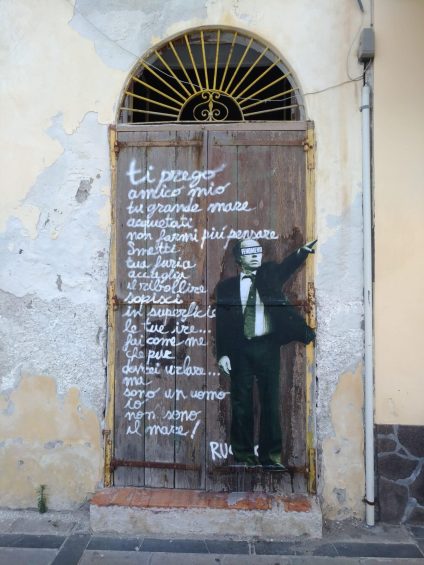 ti prego
amico mio
tu grande mare
acquetati
non farmi più pensare
Smetti
tua furia
accogli
il ribollire
sopisci
in superficie
le tue ire...
fai come me
che pur
dovrei urlare...
ma
sono un uomo
io
non sono
il mare!
FENOMENO